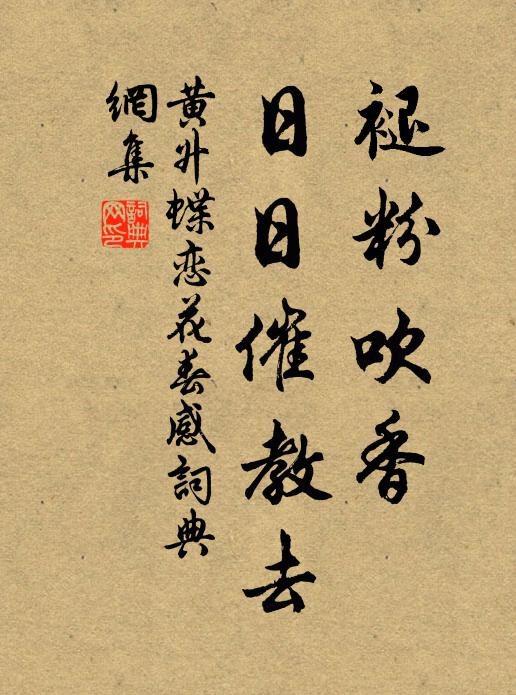 褪粉吹香
日日催教去
黄升蝶恋花春感詞典
網集
詞典
网印